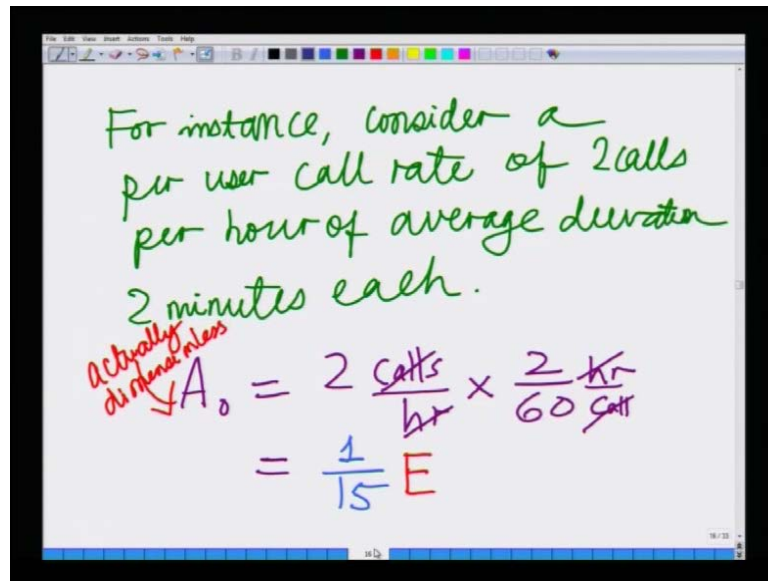 File Edit View Insert Actions Tools Help
For instance, consider a
per user call rate of 2 calls
per hour of average duration
2 minutes each.
actually
dimensionless
A₀ = 2 calls/hr × 2/60 hr/call
= 1/15 E
16/33
16